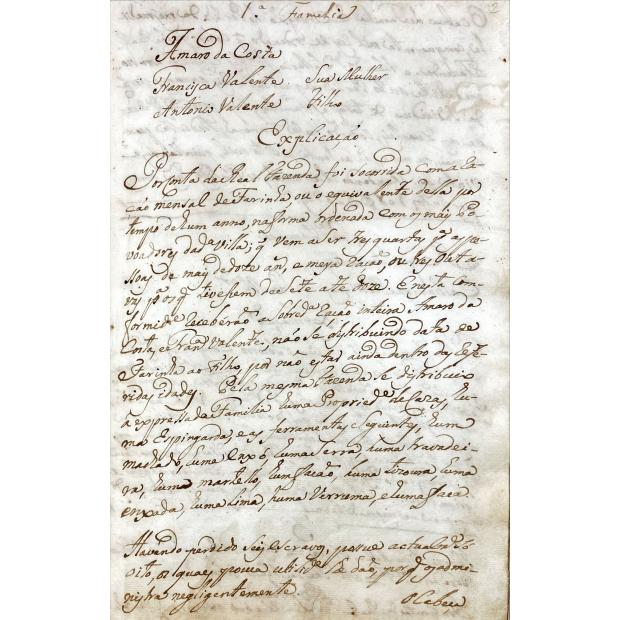 1.ª Familia
2
Amaro da Costa
Francisca Valente Sua Mulher
Antonio Valente Filho
Explicação
Por conta da Real Fazenda foi socorrida com a ra-
ção mensal de Farinha, ou o equivalente della por
tempo de hum anno, na forma ordenada com os mais Po-
voadores da d.ª Villa; q. vem a ser tres quartas p.ª as pe-
ssoas de mais de doze an.s, e meya ração, ou tres outa-
vas p.ª os q. tivessem de sete athe doze. E nesta con-
formid.e receberão a sobred.ª ração inteira Amaro da
Costa, e Fran.ca Valente, não se distribuindo data de
Farinha ao Filho, por não estar ainda dentro das refe-
ridas idades. Pela mesma Fazenda se distribuio
a expressada Familia huma Propried.e de Cazas, hu-
ma Espingarda, e as ferramentas seguintes, hum
machado, huma enxó, huma Serra, huma travadei-
ra, hum martello, hum facão, huma tizoura, huma
enxada, huma lima, huma Verruma, e huma faca.
Havendo perdido seis escravos, possue actualm.e
oito, os quaes pouca utilid.e lhe dão, por q. os admi-
nistra negligentemente.
o Cabeça